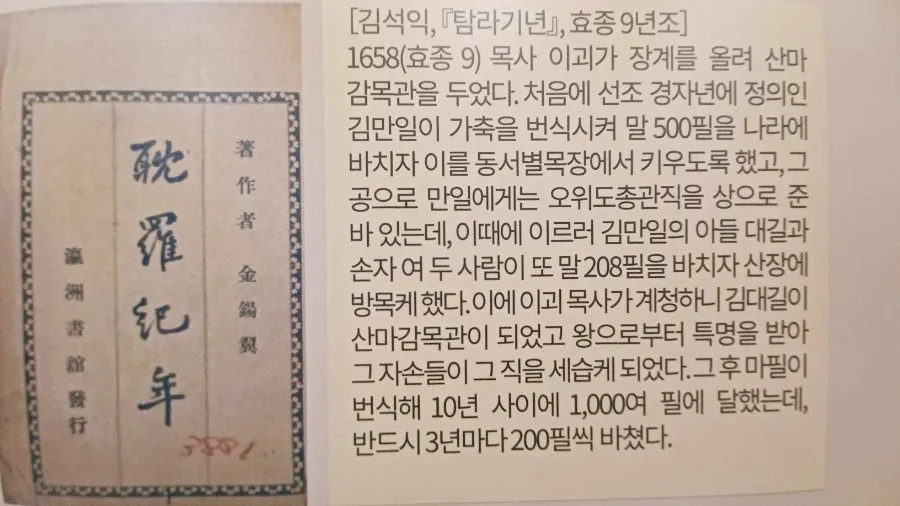 著作者 金錫翼
耽羅紀年
瀛洲書館發行
3281
[김석익,『탐라기년』, 효종 9년조]
1658(효종 9) 목사 이괴가 장계를 올려 산마
감목관을 두었다. 처음에 선조 경자년에 정의인
김만일이 가축을 번식시켜 말 500필을 나라에
바치자 이를 동서별목장에서 키우도록 했고, 그
공으로 만일에게는 오위도총관직을 상으로 준
바 있는데, 이때에 이르러 김만일의 아들 대길과
손자 여 두 사람이 또 말 208필을 바치자 산장에
방목케 했다. 이에 이괴 목사가 계청하니 김대길이
산마감목관이 되었고 왕으로부터 특명을 받아
그 자손들이 그 직을 세습케 되었다. 그 후 마필이
번식해 10년 사이에 1,000여 필에 달했는데,
반드시 3년마다 200필씩 바쳤다.